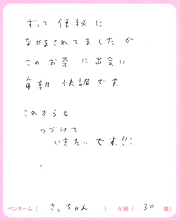 ずっと便秘に
なやまされてましたが
このお茶に出会い
毎朝快調です
これからも
つづけて
いきたいです!!
ペンネーム( さっちゃん ) 年齢( 30 歳)